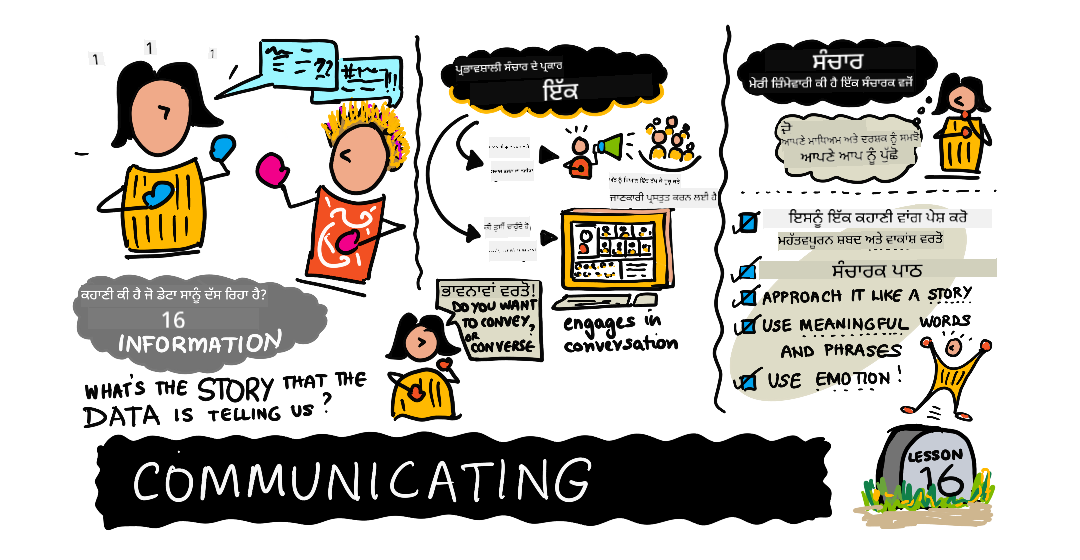 1
1
1
ਕਹਾਣੀ ਕੀ ਹੈ ਜੋ ਡੇਟਾ ਸਾਨੂੰ ਦੱਸ ਰਿਹਾ ਹੈ?
16
INFORMATION
WHAT'S THE STORY THAT THE
DATA IS TELLING US?
ਪ੍ਰਭਾਵਸ਼ਾਲੀ ਸੰਚਾਰ ਦੇ ਪ੍ਰਕਾਰ
ਇੱਕ
ਜਾਣਕਾਰੀ ਪ੍ਰਸਤੁਤ ਕਰਨ ਲਈ ਹੈ
ਭਾਵਨਾਵਾਂ ਵਰਤੋ!
DO YOU WANT
TO CONVEY,
OR
CONVERSE
?
engages in
conversation
ਸੰਚਾਰ
ਮੇਰੀ ਜ਼ਿੰਮੇਵਾਰੀ ਕੀ ਹੈ ਇੱਕ ਸੰਚਾਰਕ ਵਜੋਂ
ਹੋ
ਆਪਣੇ ਮਾਧਿਅਮ ਅਤੇ ਦਰਸ਼ਕ ਨੂੰ ਸਮਝੋ
ਆਪਣੇ ਆਪ ਨੂੰ ਪੁੱਛੋ
ਇਸਨੂੰ ਇੱਕ ਕਹਾਣੀ ਵਾਂਗ ਪੇਸ਼ ਕਰੋ
ਮਹੱਤਵਪੂਰਨ ਸ਼ਬਦ ਅਤੇ ਵਾਕਾਂਸ਼ ਵਰਤੋ
ਸੰਚਾਰਕ ਪਾਠ
APPROACH IT LIKE A STORY
USE MEANINGFUL WORDS
AND PHRASES
USE EMOTION!
COMMUNICATING
LESSON
16